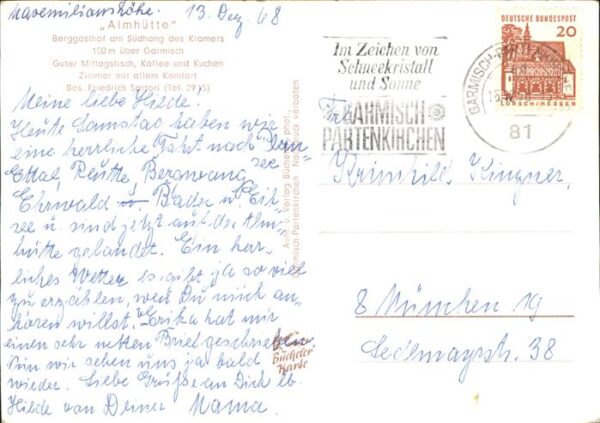 Maximilianshöhe. 13. Dez. 68
„Almhütte"
Berggasthof am Südhang des Kramers
100 m über Garmisch
Guter Mittagstisch, Kaffee und Kuchen
Zimmer mit allem Komfort
Bes. Friedrich Sartori (Tel. 2915)
Meine liebe Hilde.
Heute Samstag haben wir
eine herrliche Fahrt nach
Ettal, Reutte, Berwang, see
Ehrwald Bader u. Eib-
see u. sind jetzt auf die Alm-
hütte gelandet. Ein herr-
liches Wetter es gibt ja so viel
zu erzählen, wenn Du mich an-
hören willst. Erika hat mir
einen sehr netten Brief geschrieben
Nun wir sehen uns ja bald
wieder. Liebe Grüße an Dich lb.
Hilde von Deiner Mama.
Aufn. u. Verlag Bücheler, phot.
Garmisch-Partenkirchen Nachdruck verboten
Bücheler
Karte
Im Zeichen von
Schneekristall
und Sonne
GARMISCH
PARTENKIRCHEN
GARMISCH-PARTENKIRCHEN
81
DEUTSCHE BUNDESPOST
20
LORSCH/HESSEN
Frl.
Krimhild
8 München 19
Sedlmayrstr. 38